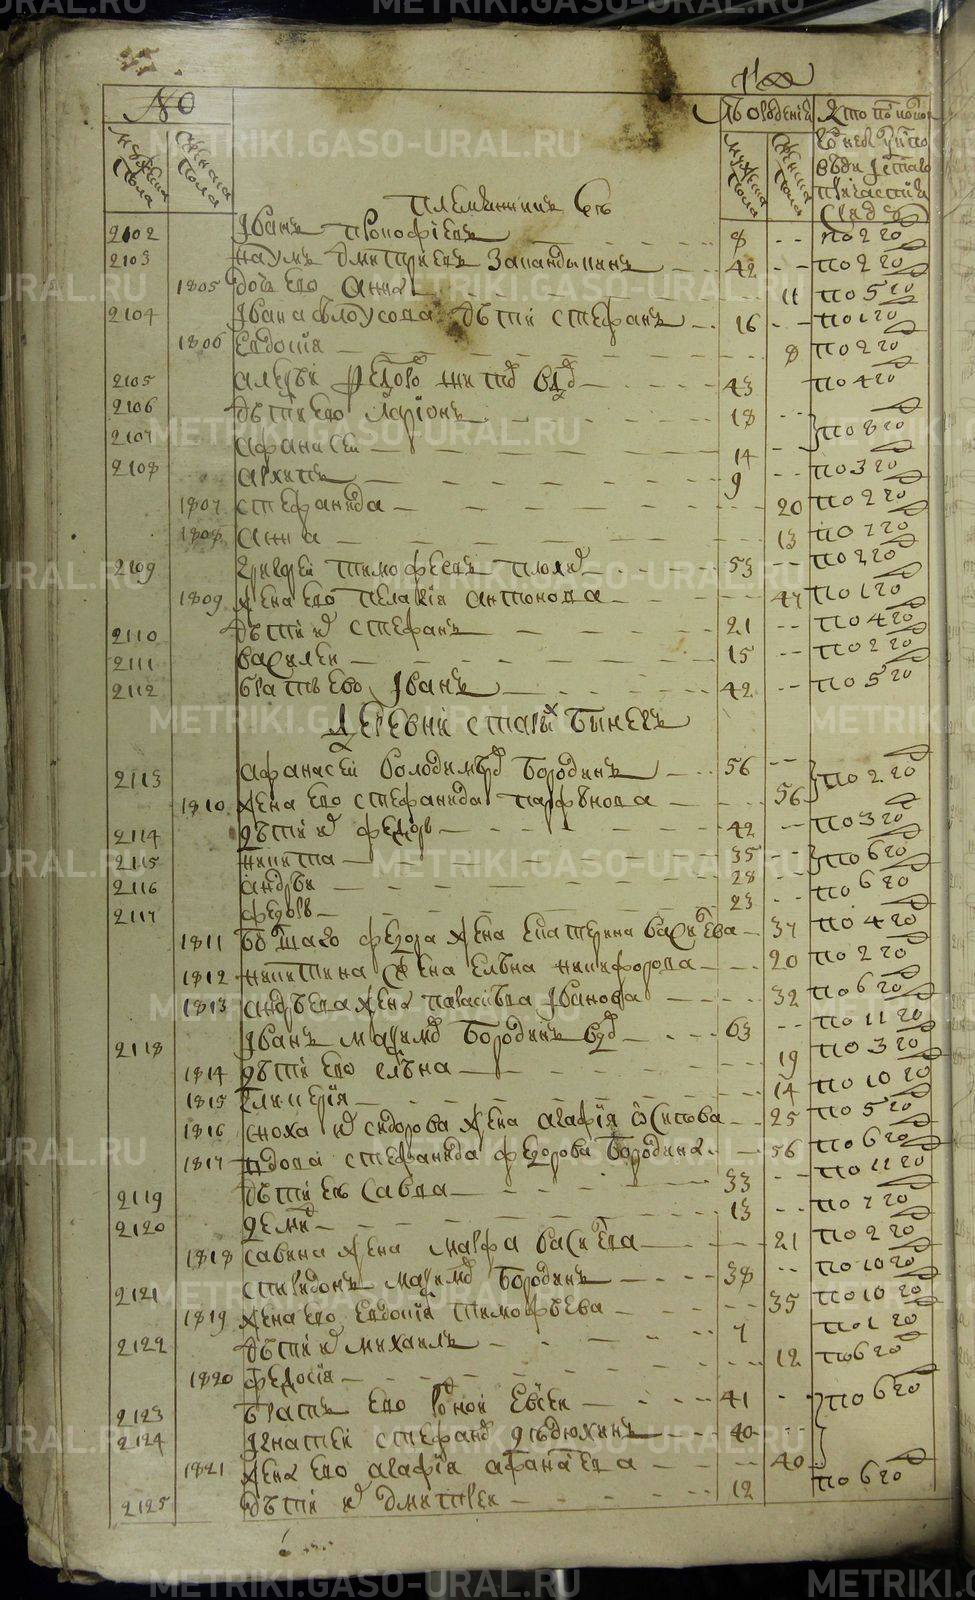 №
мужеска пола
женска пола
Лѣто рождения
мужска пола
женска пола
племянникъ ево
2102 Иванъ Прокофьевъ 8 по 2 го
2103 Наумъ Дмитриевъ 42 по 2 го
1805 дочь ево Анна 11 по 5 го
2104 Ивана дѣти Стефанъ 16
1806 Евдокия 8 по 2 го
2105 Алексѣй 43 по 4 го
2106 дѣти ево Ларионъ 18
2107 Афанасей 14 по 8 го
2108 Архипъ 9 по 3 го
1807 Стефанида 20 по 2 го
1808 Анна 13 по 2 го
2109 Григорей Тимофеевъ 53
1809 жена ево Пелагия Антонова 47
2110 дѣти их Стефанъ 21 по 4 го
2111 Василей 15 по 2 го
2112 братъ ево Иванъ 42 по 5 го
Деревни Старых Бынегъ
2113 Афанасей Володимеров Бородинъ 56 по 2 го
1810 жена ево Стефанида Парфѣнова 56
2114 дѣти их Федоръ 42 по 3 го
2115 Никита 35 по 6 го
2116 Андрѣй 28 по 6 го
2117 Федоръ 23
1811 Болшаго Федора жена Екатерина Василева 37 по 4 го
1812 Никитина жена Елѣна Никифорова 20 по 2 го
1813 Андрѣева жена Параскѣва Иванова 32 по 6 го
2118 Иванъ Максимов Бородинъ вдов 63 по 11 го
1814 дѣти ево Елѣна 19 по 3 го
1815 Гликерия 14 по 10 го
1816 сноха их Сидорова жена Агафия Осипова 25 по 5 го
1817 вдова Стефанида Федорова Бородина 56 по 6 го
2119 дѣти ея Савва 33 по 11 го
2120 Демид 13 по 2 го
1818 Савина жена Марфа Василева 21 по 2 го
2121 Спиридонъ Максимов Бородинъ 38 по 10 го
1819 жена ево Евдокия Тимофѣева 35 по 10 го
2122 дѣти их Михаилъ 7 по 1 го
1820 Федосия 12 по 6 го
2123 братъ ево родной Евсей 41 по 6 го
2124 Игнатей Стефанов 40
1821 жена ево Агафия Афанасева 40
2125 дѣти их Дмитрей 12 по 6 го
METRIKI.GASO-URAL.RU